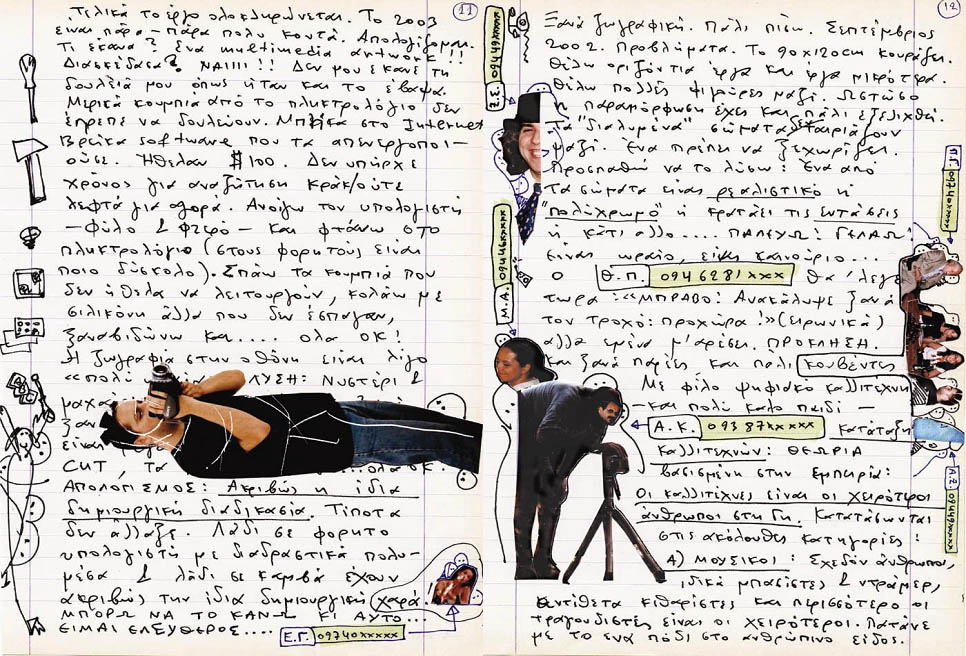 11
Τελικά το έργο ολοκληρώνεται. Το 2003
είναι πάρα-πάρα πολύ κοντά. Απολογίζομαι.
Τι έκανα? Ένα multimedia artwork!!
Διασκέδασα? ΝΑΙΙΙΙ!! Δεν μου έκανε τη
δουλειά μου όπως ήταν και το έβαψα.
Μερικά κουμπιά από το πληκτρολόγιο δεν
έπρεπε να δουλεύουν. Μπήκα στο Internet
Βρήκα software που τα απενεργοποι-
ούσε. Ήθελαν $100. Δεν υπήρχε
χρόνος για αναζήτηση κράκ/ούτε
λεφτά για αγορά. Ανοίγω τον υπολογιστή
-φύλο & φτερό- και φτάνω στο
πληκτρολόγιο (στους φορητούς είναι
ποιο δύσκολο). Σπάω τα κουμπιά που
δεν ήθελα να λειτουργούν, κολάω με
σιλικόνη άλλα που δεν έσπαγαν,
ξαναβιδώνω και.... ολα ΟΚ!
Η ζωγραφιά στην οθόνη είναι λίγο
«πολύ ΛΥΣΗ: Νυστέρι &
μαχα
ξαν
είναι
CUT, τα ολα ΟΚ.
ΑΠΟΛΟΓΙΣΜΟΣ: Ακριβώς η ίδια
δημιουργική διαδικασία. Τίποτα
δεν άλλαξε. Λάδι σε φορητο
υπολογιστή με διαδραστικά πολυ-
μέσα & λάδι σε καμβά έχουν
ακριβώς την ίδια δημιουργική χαρά
ΜΠΟΡΩ ΝΑ ΤΟ ΚΑΝΩ ΚΙ ΑΥΤΟ...
ΕΙΜΑΙ ΕΛΕΥΘΕΡΟΣ....
Ε.Γ. 09740xxxxx
12
Ξανά ζωγραφική. Πάλι πίσω. Σεπτέμβριος
2002. Προβλήματα. Το 90x120cm κουράζει.
Θέλω οριζόντια έργα και έργα μικρότερα.
Θέλω πολλές φιγούρες μαζί. Ωστόσο
η παραμόρφωση έχει και πάλι εξελιχθεί.
Τα "διαλυμένα" σώματα δεν ταιριάζουν
μαζί. Ένα πρέπει να ξεχωρίζει.
Προσπαθώ να το λύσω: Ένα από
τα σώματα είναι ρεαλιστικό ή
"πολύχρωμο" ή κρατάει τις εντάσεις
ή κάτι άλλο.... ΠΑΛΕΥΩ! ΓΕΛΑΩ!
Είναι ωραίο, είναι καινούριο...
Ο Θ.Π. 0946281xxx θα 'λεγε
τώρα: «ΜΠΡΑΒΟ! Ανακάλυψε ξανά
τον τροχό: προχώρα!» (ειρωνικά)
αλλά εμένα μ'αρέσει. ΠΡΟΚΛΗΣΗ.
Και ξανά παρέες και πάλι κουβέντες
Με φίλο ψηφιακό καλλιτέχνη
-και πολύ καλό παιδί-
Α.Κ. 09387xxxxx κατάταξη
καλλιτεχνών: ΘΕΩΡΙΑ
βασισμένη στην εμπειρία:
Οι καλλιτέχνες είναι οι χειρότεροι
άνθρωποι στη Γη. Κατατάσσονται
στις ακόλουθες κατηγορίες:
Α) ΜΟΥΣΙΚΟΙ: Σχεδόν άνθρωποι,
ιδικά μπασίστες & ντράμερ,
αντίθετα κιθαρίστες και περισσότερο οι
τραγουδιστές είναι οι χειρότεροι. Πατάνε
με το ένα πόδι στο ανθρώπινο είδος.
Σ.Σ. 09449xxxxx
Μ.Α. 09446xxxxx
Π.Γ.
Α.Σ.